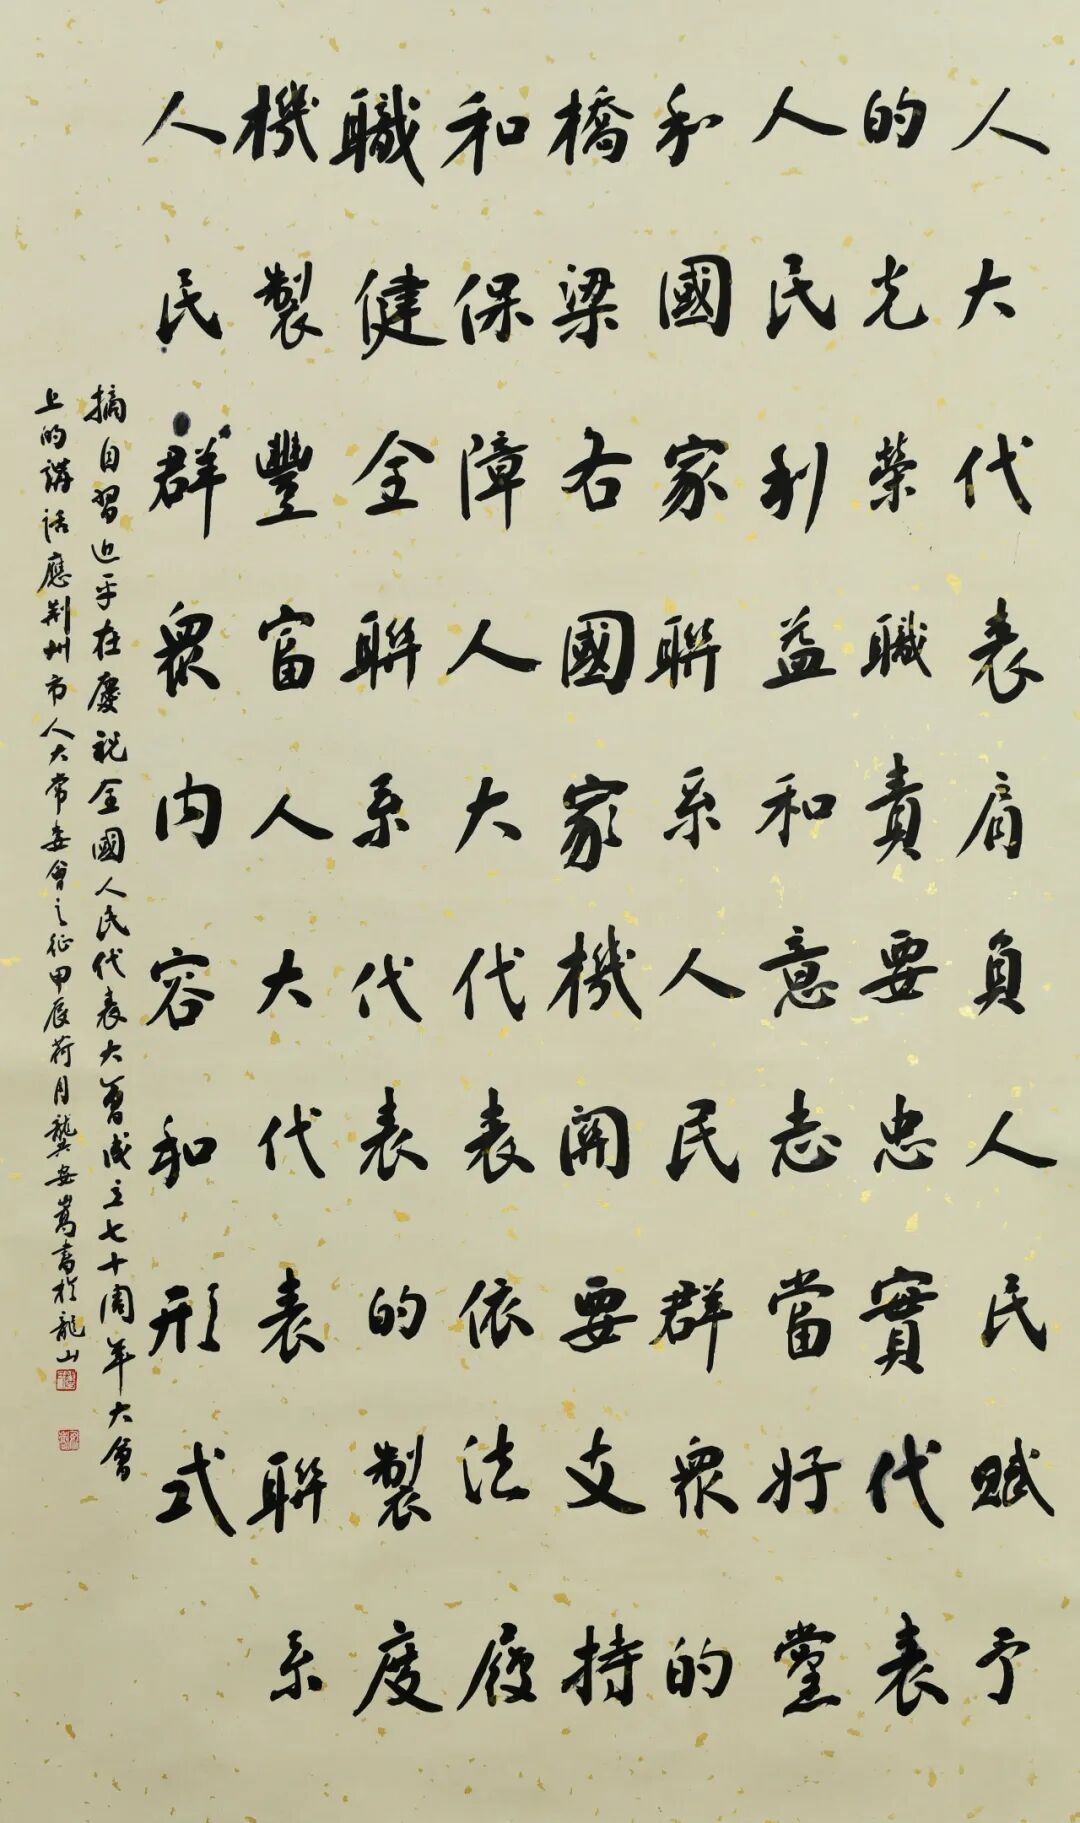 人大代表肩負人民賦予
的光榮職責要忠實代表
人民利益和意志當好黨
和國家聯系人民群眾的
橋梁各國家機關要支持
和保障人大代表依法履
職健全聯系代表的製度
機製豐富人大代表聯系
人民群眾內容和形式
摘自習近平在慶祝全國人民代表大會成立七十周年大會
上的講話應荆州市人大常委會之征甲辰荷月龔安嵩書於龍山